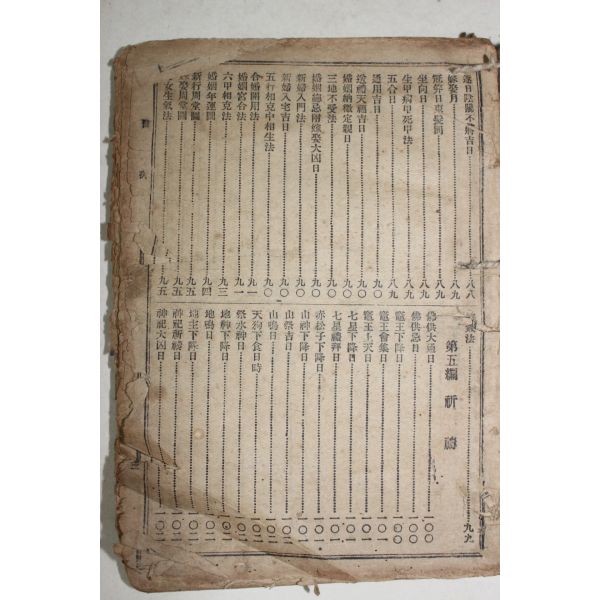 陰陽不將吉日……八八
嫁娶月……八九
冠筓日……八九
坐向日……八九
生甲病甲死甲法……八九
五合日……八九
通用吉日……九〇
送禮天福吉日……九〇
婚姻納徵定親日……九〇
三地不受法……九〇
婚姻總忌附嫁娶大凶日……九〇
新婦入門法……九〇
新婦入宅吉日……九〇
五行相克中相生法……九〇
合婚開用法……九一
婚姻宮合法……九一
六甲相克法……九三
婚姻年運圖……九四
新行周堂圖……九五
周堂圖……九五
女生氣法……九五
法……九九
第五編 祈禱
佛供大通日……一〇〇
佛供忌日……一〇〇
竈王下降日……一〇〇
竈王會集日……一〇一
竈王上天日……一〇一
七星下降日……一〇一
七星禮拜日……一〇一
赤松子下降日……一〇一
山神下降日……一〇一
山祭吉日……一〇二
山鳴日……一〇二
天狗下食日時……一〇二
祭水神日……一〇二
地神下降日……一〇二
地鳴日……一〇二
地主下降日……一〇二
神祀祈禱日……一〇二
神祀大凶日……一〇二
目 次